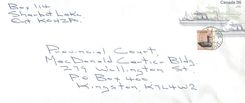 Box 114
Sharbot Lake
Ont K0H2P0
Canada 36
Provincial Court,
MacDonald Cartier Bldg
279 Wellington St.
PO Box 400
Kingston K7L4W2